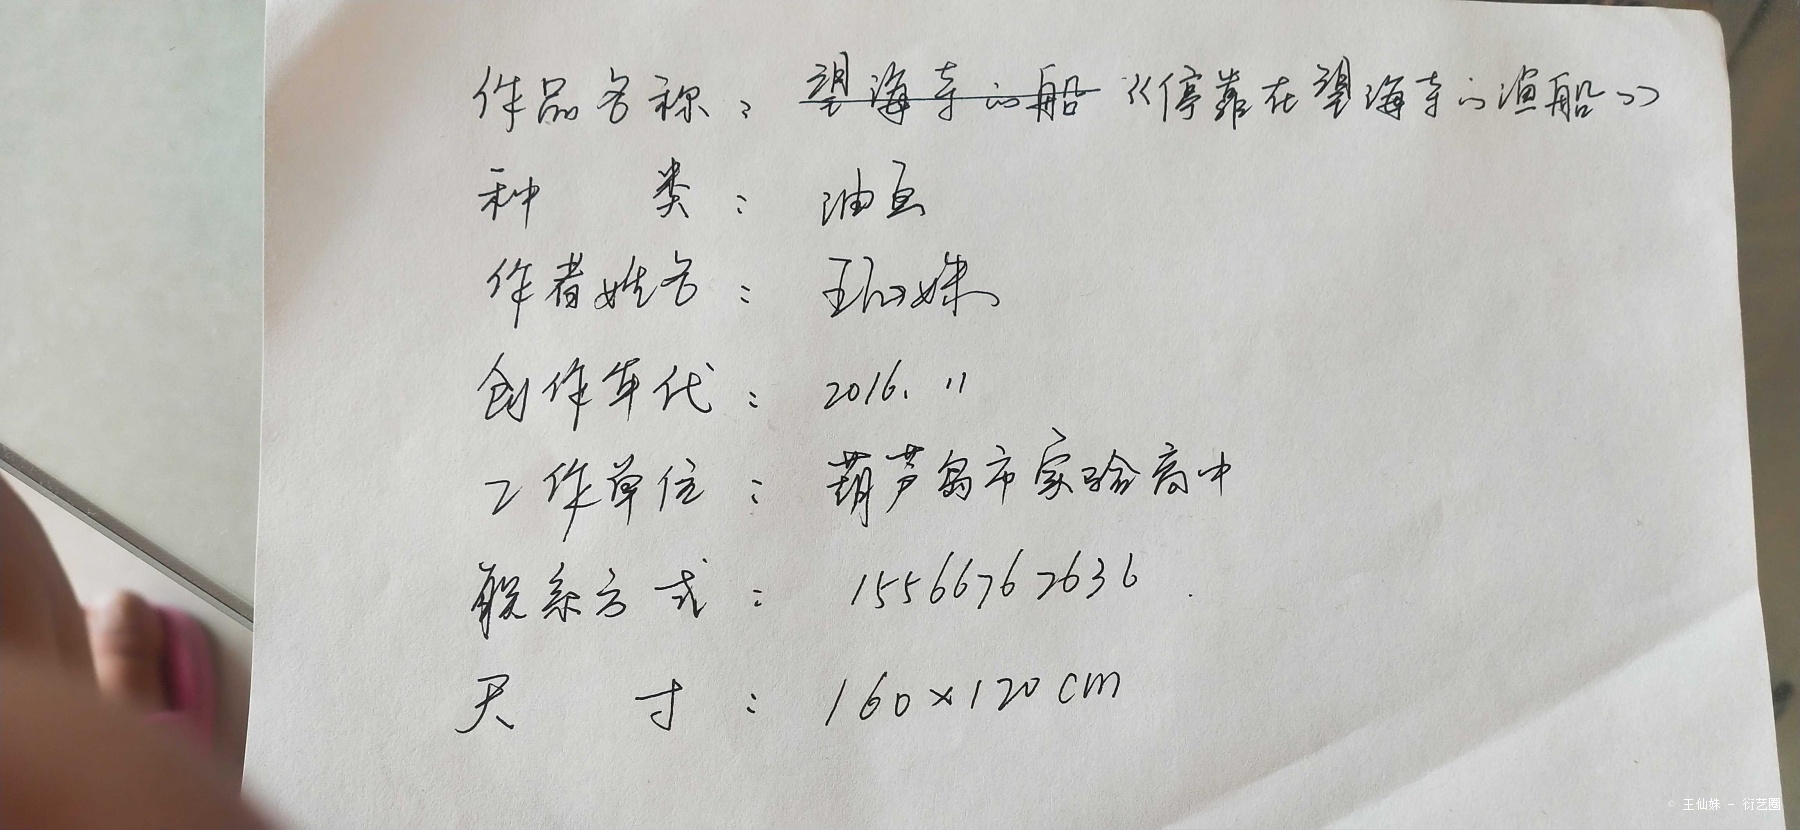 作品名称：望海寺的船《停靠在望海寺的渔船》
种 类：油画
作者姓名：王仙姝
创作年代：2016.11
工作单位：葫芦岛市实验高中
联系方式：15566762636
尺 寸：160×120cm
© 王仙姝 - 衍艺圈